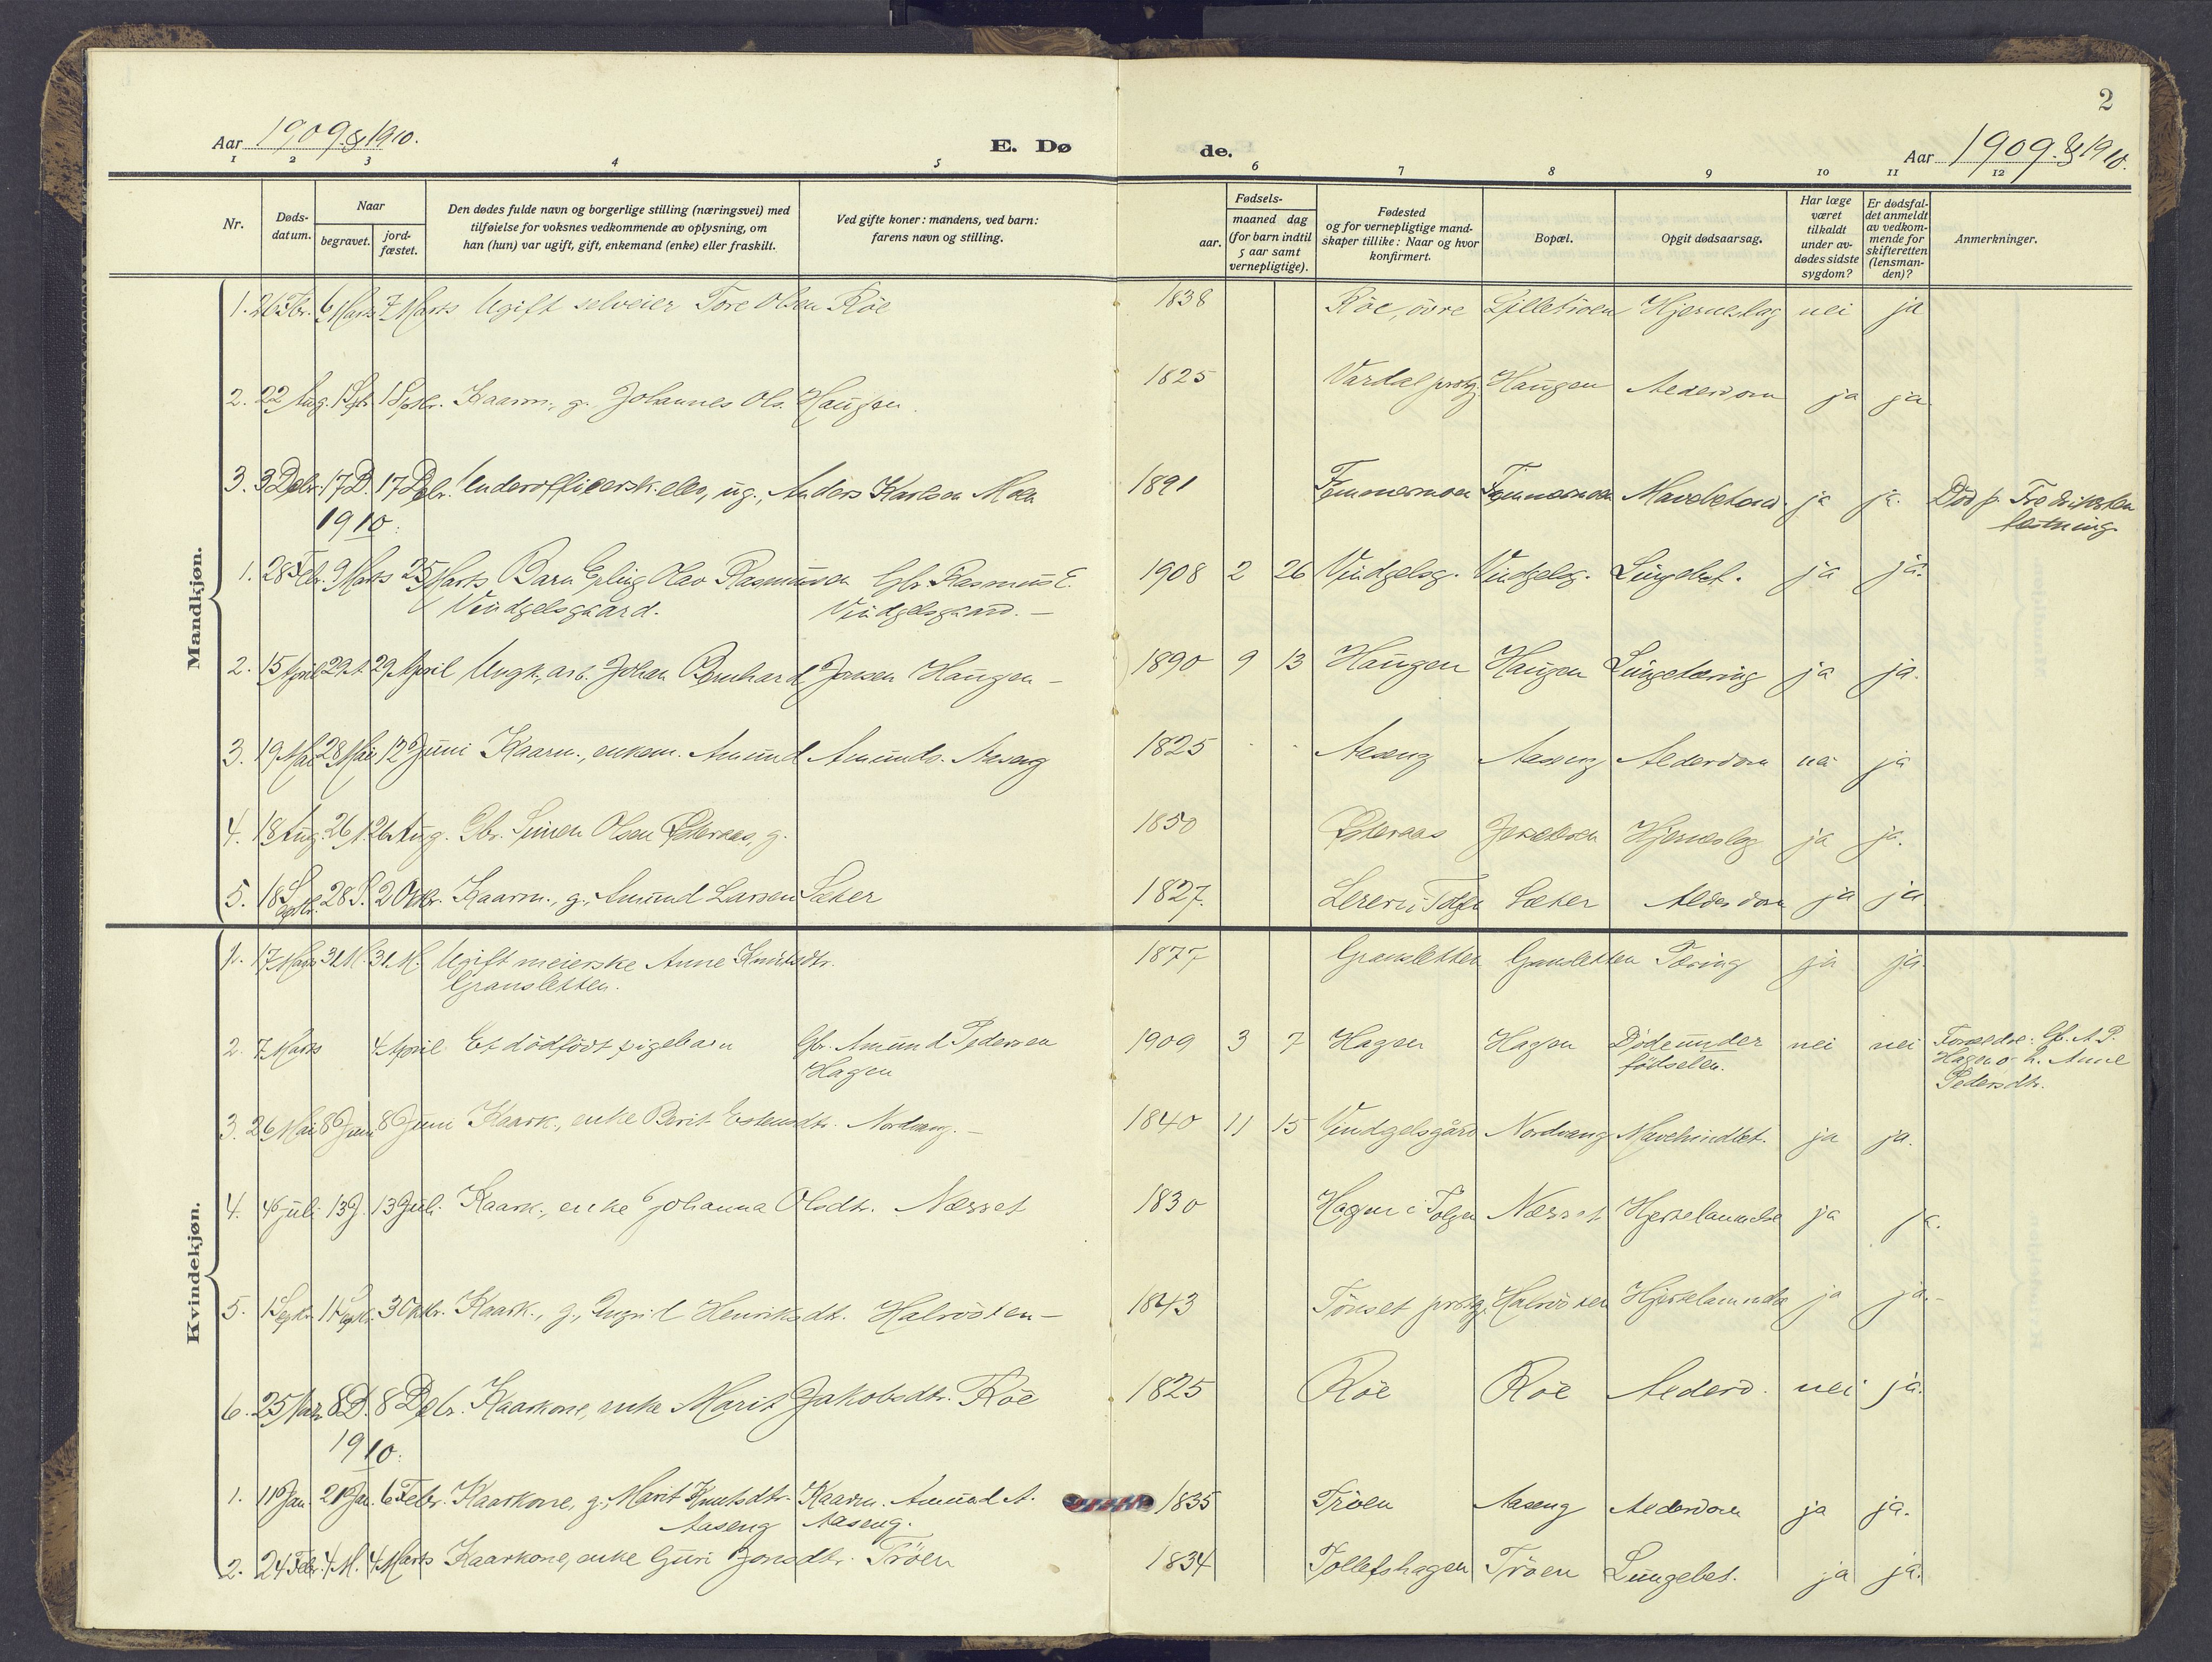 2
Aar 1909 & 1910.
E. Dø
de.
Aar 1909 & 1910.
1 2 3 4 5 6 7 8 9 10 11 12
Nr.
Døds-
datum.
Naar
begravet.
jord-
fæstet.
Den dødes fulde navn og borgerlige stilling (næringsvei) med
tilføielse for voksnes vedkommende av oplysning, om
han (hun) var ugift, gift, enkemand (enke) eller fraskilt.
Ved gifte koner: mandens, ved barn:
farens navn og stilling.
Fødsels-
aar.
maaned dag
(for barn indtil
5 aar samt
vernepligtige).
Fødested
og for vernepligtige mand-
skaper tillike: Naar og hvor
konfirmert.
Bopæl.
Opgit dødsaarsag.
Har læge
været
tilkaldt
under av-
dødes sidste
sygdom?
Er dødsfal-
det anmeldt
av vedkom-
mende for
skifteretten
(lensman-
den)?
Anmerkninger.
Mandkjøn.
1. 26 Febr. 6 Marts 7 Marts Ugift selveier Tore Olsen Røe 1838 Røe, övre Lilletröen Hjerneslag nei ja
2. 22 Aug. 1 Sept. 1 Septbr. Kaarm., g. Johannes Ols. Haugen. 1825 Vardal prstg. Haugen Alderdom ja ja
3. 3 Decbr. 17 D. 17 Decbr. Underofficersk.elev, ug., Anders Karlsen Moen 1891 Tömmermoen Tömmermoen ja ja. Död p. Fredriksten
fæstning.
1910.
1. 28 Febr. 9 Marts 25 Marts Barn Erling Olav Rasmussen Gbr. Rasmus E. 1908 2 26 Vindgelsg. Vindgelsg. Lungebet. ja ja.
Vindgelsgaard. Vindgelsgaard. —
2. 15 April 29 A. 29 April Ungk., arb. Johan Bernhard Jonsen Haugen — 1890 9 13 Haugen Haugen Lungetæring ja ja.
3. 19 Mai 28 Mai 12 Juni Kaarm., enkem. Amund Amunds. Aaseng 1825 Aaseng Aaseng Alderdom nei ja
4. 18 Aug. 26 A. 26 Aug. Gbr. Simen Olsen Østeraas, g. 1850 Østeraas Hjerneslag ja ja.
5. 18 Septbr. 28 S. 2 Oktbr. Kaarm., g., Amund Larsen Sæter 1827. i Tolgen Sæter Alderdom ja ja
Kvindekjøn.
1. 17 Marts 31 M. 31 M. Ugift meierske Anne Knutsdtr. 1877 Gransletten Gransletten Tæring ja ja.
Gransletten.
2. 7 Marts 4 April Et dödfödt pigebarn Gbr. Amund Pedersen 1909 3 7 Hagen Hagen Döde under nei nei Forældre: Gb. A. P.
Hagen födselen. Hagen o. h. Anne
Pedersdtr.
3. 26 Mai 8 Juni 8 Juni Kaark., enke Berit Estensdtr. Nordvang. — 1840 11 15 Vindgelsgård Nordvang ja ja.
4. 4 Juli 13 J. 13 Juli Kaark., enke Johanna Olsdtr. Næsset 1830 Hagen i Tolgen Næsset Hjertelammelse ja ja.
5. 1 Septbr. 11 Septbr. 3 Oktbr. Kaark., g., Ingrid Henriksdtr. Halvösten — 1843 Tönset prstg. Halvösten Hjertelammelse ja ja.
6. 25 Novbr. 8 D. 8 Decbr. Kaarkone, enke Marit Jakobsdtr. Röe 1825 Röe Röe Alderd. nei ja.
1910.
1. 11 Jan. 21 Jan. 6 Febr. Kaarkone, g., Marit Knutsdtr. Kaarm. Amund A. 1835 Tröen Aaseng Alderdom ja ja.
Aaseng Aaseng.
2. 24 Febr. 4 M. 4 Marts Kaarkone, enke Guri Jonsdtr. Tröen 1834 Tollefshagen Tröen Lungebet. ja ja.